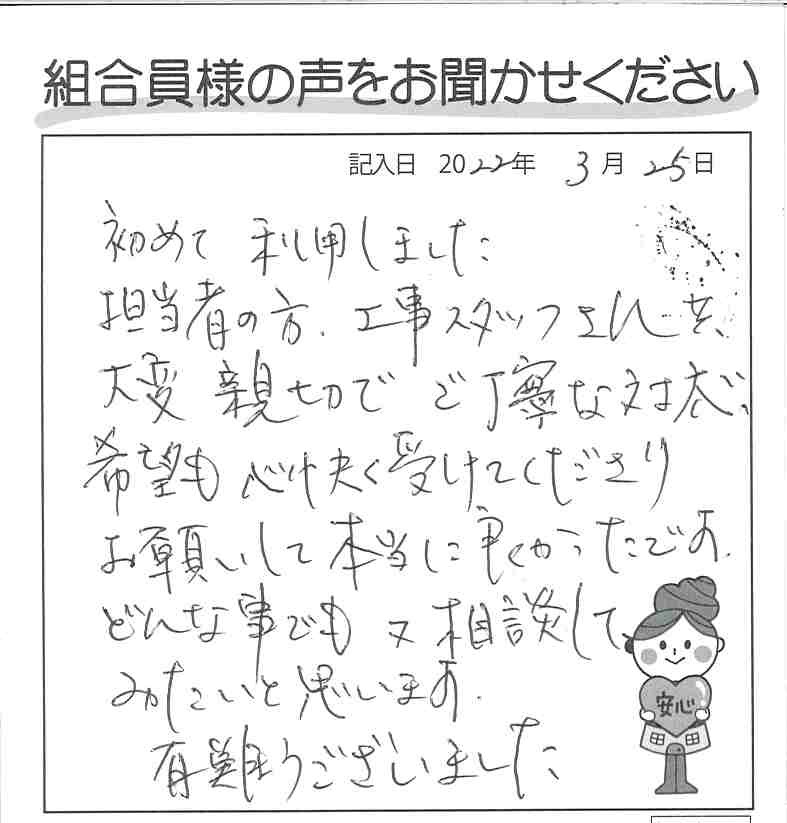 組合員様の声をお聞かせください
記入日 2022年 3月 25日
初めて 利用しました
担当者の方、工事スタッフさんも、
大変 親切で ご丁寧な対応、
希望も 心快く受けてくださり
お願いして本当に良くかったです。
どんな事でも 又 相談して、
みたいと思います。
有難うございました
安心